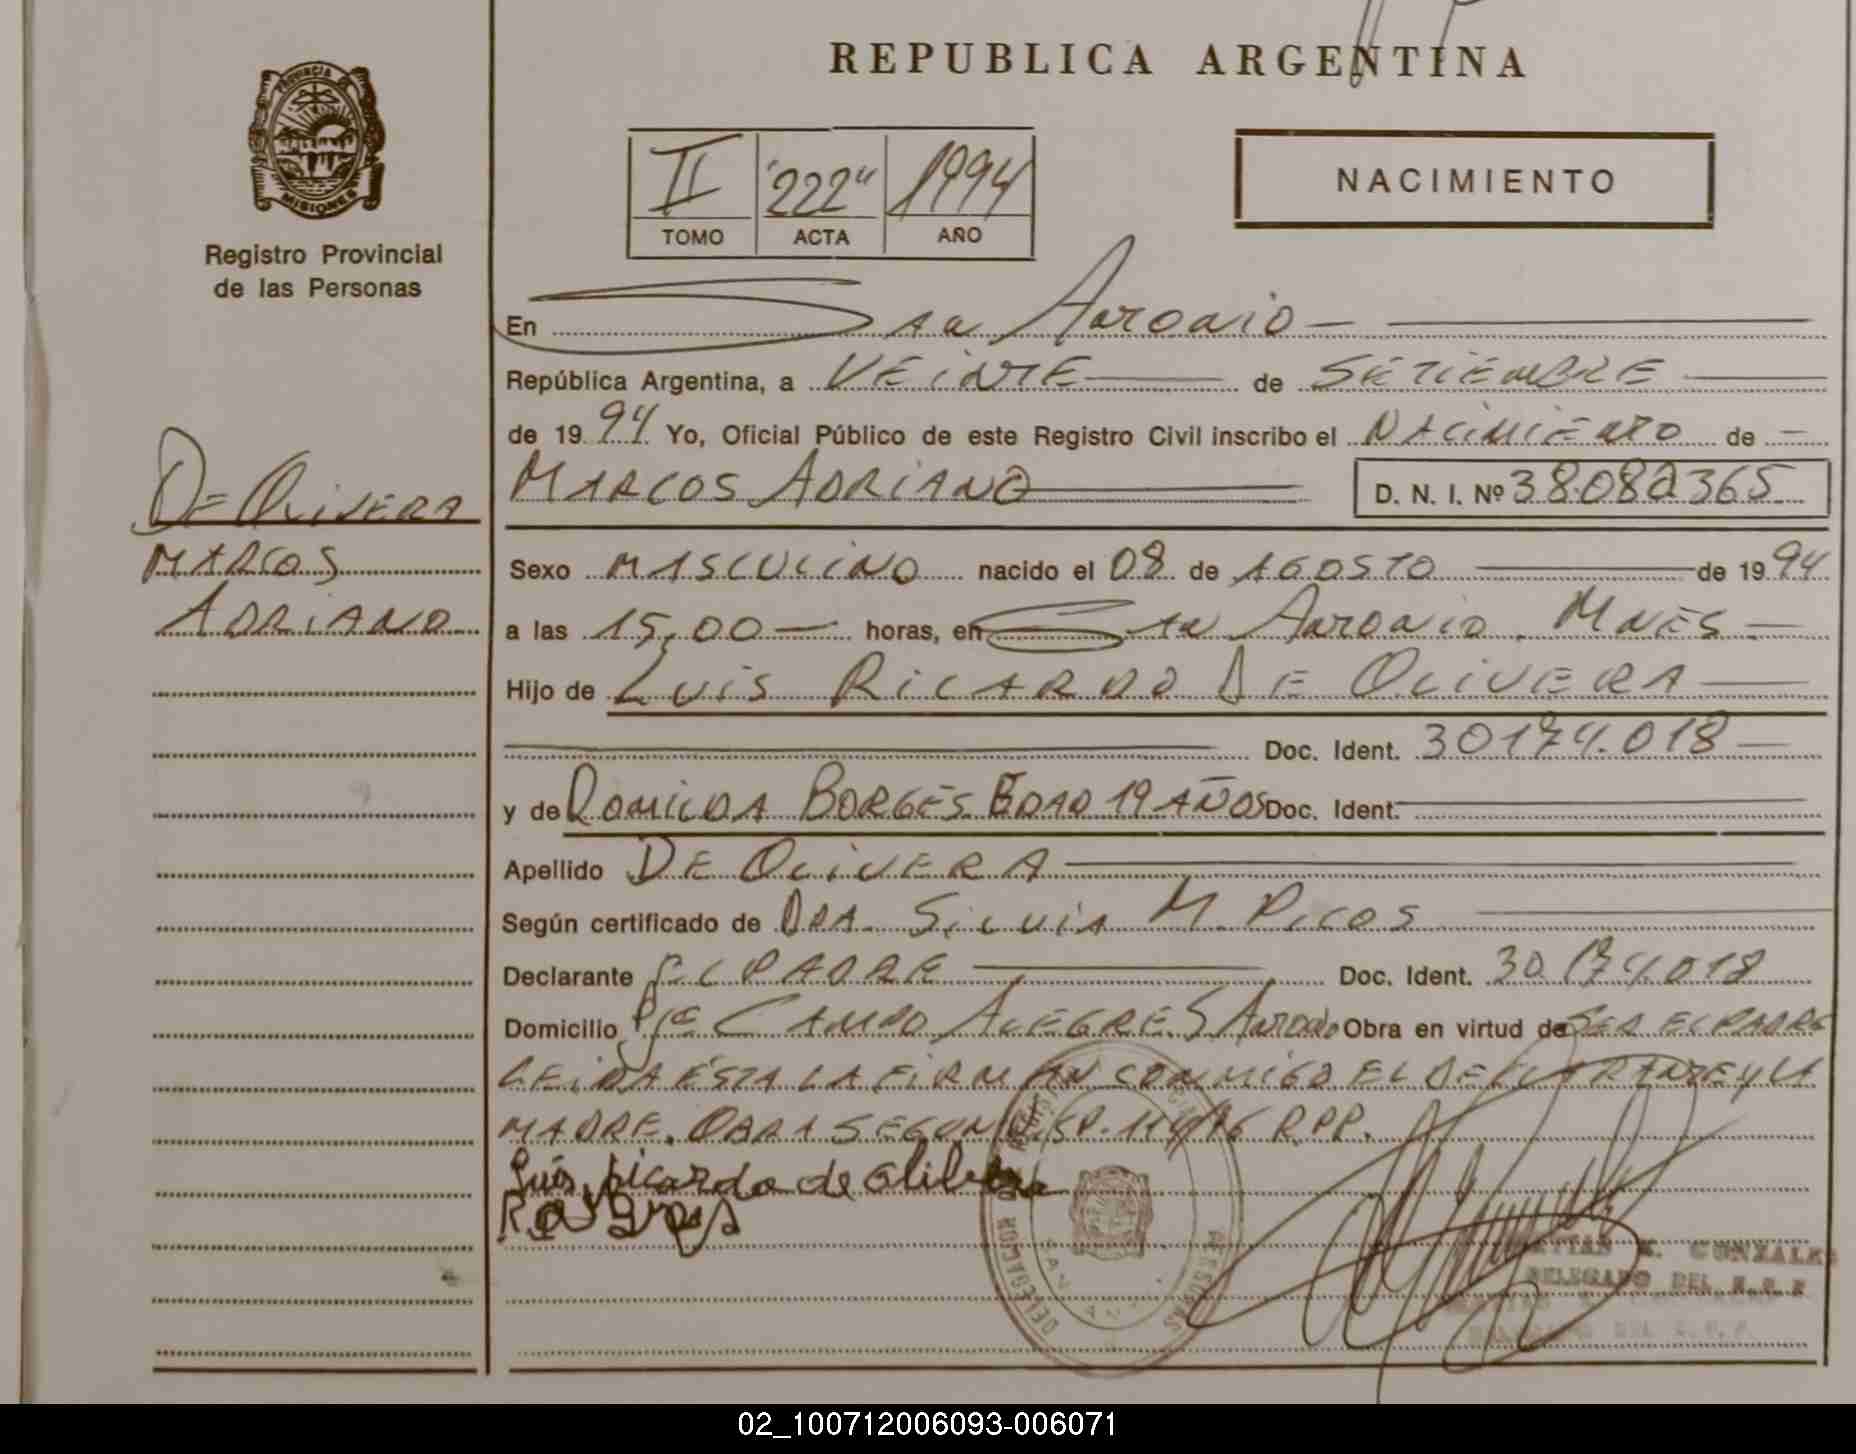 REPUBLICA ARGENTINA
PROVINCIA DE MISIONES
Registro Provincial
de las Personas
II "222" 1994
TOMO ACTA AÑO
NACIMIENTO
En San Antonio
República Argentina, a VEINTE de SETIEMBRE
de 1994 Yo, Oficial Público de este Registro Civil inscribo el NACIMIENTO de
MARCOS ADRIANO D. N. I. Nº 38.082365
DE OLIVERA
MARCOS
ADRIANO
Sexo MASCULINO nacido el 08 de AGOSTO de 1994
a las 15,00 horas, en San Antonio. MNES
Hijo de LUIS RICARDO DE OLIVERA
Doc. Ident. 30174.018
y de ROMILDA BORGES. EDAD 19 AÑOS Doc. Ident.
Apellido DE OLIVERA
Según certificado de DRA. SILVIA M. PICOS
Declarante EL PADRE Doc. Ident. 30.174.018
Domicilio Pje CAMPO ALEGRE. S Antonio Obra en virtud de SER EL PADRE
LEIDA ÉSTA LA FIRMAN CONMIGO EL DECLARANTE Y LA
MADRE. OBRA SEGUN R.P.P.
Luis ricardo de olibera
DELEGADO DEL R.P.P.
02_100712006093-006071